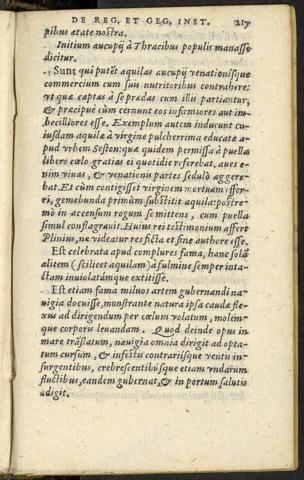 DE REG. ET GEG. INST. 217
pibus ætate nostra.
Initium aucupij à Thracibus populis manasse
dicitur.
Sunt qui putēt aquilas aucupij venationisque
commercium cum suis nutritoribus contrahere:
vt qua captas à se prædas cum illis partiantur,
& præcipuè cùm cernunt eos infirmiores aut im-
becilliores esse. Exemplum autem inducunt cu-
iusdam aquilæ à virgine pulcherrima educatæ a-
pud vrbem Seston: quæ quidem permissa à puella
libero cœlo gratias ei quotidie referebat. aues e-
nim viuas, & venationis partes sedulò aggere-
bat. Et cùm contigisset virginem mortuam effer-
ri, gemebunda primùm substitit aquila: postre-
mò in accensum rogum se mittens, cum puella
simul conflagrauit. Huius rei testimonium affert
Plinius, ne videatur res ficta et sine authore esse.
Est celebrata apud complures fama, hanc solā
alitem (scilicet aquilam) à fulmine semper inta-
ctam inuiolatámque extitisse.
Est etiam fama miluos artem gubernandi na-
uigia docuisse, monstrante natura ipsa cauda fle-
xus ad dirigendum per cœlum volatum, molém-
que corporis leuandam. Quod deinde opus in
mare trāslatum, nauigia omnia dirigit ad opta-
tum cursum, & infestis contrariísque ventis in-
surgentibus, crebrescentibúsque etiam vndarum
fluctibus, eandem gubernat, & in portum salutis
adigit.